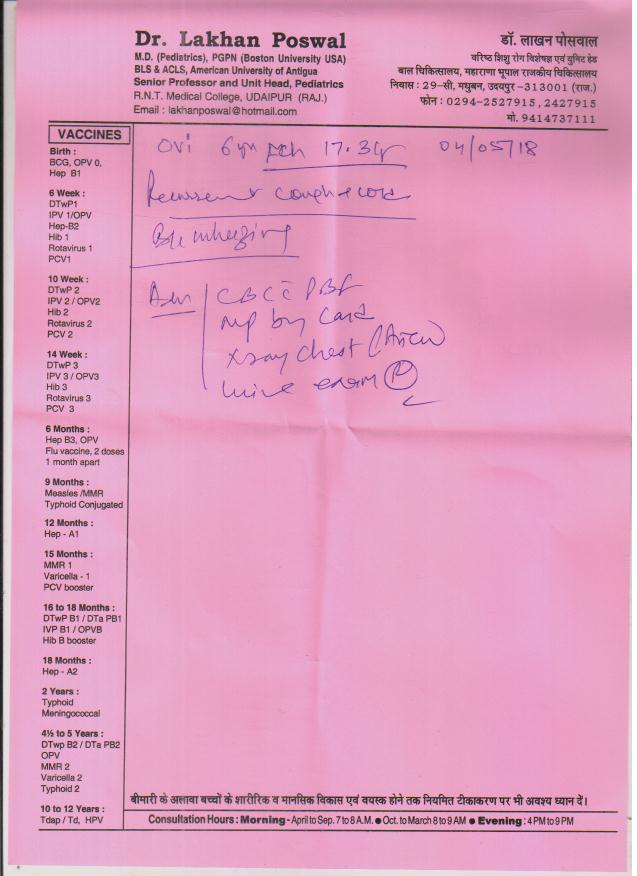 Dr. Lakhan Poswal
M.D. (Pediatrics), PGPN (Boston University USA)
BLS & ACLS, American University of Antigua
Senior Professor and Unit Head, Pediatrics
R.N.T. Medical College, UDAIPUR (RAJ.)
Email : lakhanposwal@hotmail.com
डॉ. लाखन पोसवाल
वरिष्ठ शिशु रोग विशेषज्ञ एवं युनिट हेड
बाल चिकित्सालय, महाराणा भूपाल राजकीय चिकित्सालय
निवास : 29-सी, मधुबन, उदयपुर -313001 (राज.)
फोन : 0294-2527915, 2427915
मो. 9414737111
VACCINES
Birth :
BCG, OPV 0,
Hep B1
6 Week :
DTwP1
IPV 1/OPV
Hep-B2
Hib 1
Rotavirus 1
PCV1
10 Week :
DTwP 2
IPV 2 / OPV2
Hib 2
Rotavirus 2
PCV 2
14 Week :
DTwP 3
IPV 3 / OPV3
Hib 3
Rotavirus 3
PCV 3
6 Months :
Hep B3, OPV
Flu vaccine, 2 doses
1 month apart
9 Months :
Measles /MMR
Typhoid Conjugated
12 Months :
Hep - A1
15 Months :
MMR 1
Varicella - 1
PCV booster
16 to 18 Months :
DTwP B1 / DTa PB1
IVP B1 / OPVB
Hib B booster
18 Months :
Hep - A2
2 Years :
Typhoid
Meningococcal
4½ to 5 Years :
DTwp B2 / DTa PB2
OPV
MMR 2
Varicella 2
Typhoid 2
10 to 12 Years :
Tdap / Td, HPV
04/05/18
Recurrent cough & cold
wheezing
Adv CBC c̄ PBF
mp by Card
xray chest
urine exam
बीमारी के अलावा बच्चों के शारीरिक व मानसिक विकास एवं वयस्क होने तक नियमित टीकाकरण पर भी अवश्य ध्यान दें।
Consultation Hours : Morning - April to Sep. 7 to 8 A.M. ● Oct. to March 8 to 9 AM ● Evening : 4 PM to 9 PM